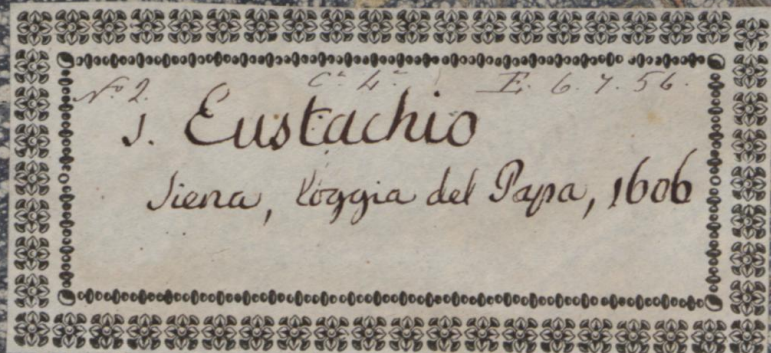 No 2. Ca 4a E. 6. 7. 56.
S. Eustachio
Siena, loggia del Papa, 1606